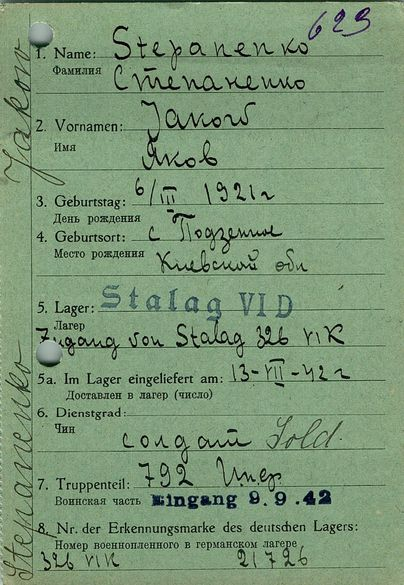 623
1. Name: Stepanenko
Фамилия Степаненко
2. Vornamen: Jakow
Имя Яков
3. Geburtstag: 6/III 1921г
День рождения
4. Geburtsort: с Подзенное
Место рождения Киевской обл
5. Lager: Stalag VI D
Лагерь
Zugang von Stalag 326 VIK
5a. Im Lager eingeliefert am: 13-VII-42г
Доставлен в лагерь (число)
6. Dienstgrad:
Чин солдат Sold.
7. Truppenteil: 792
Воинская часть Eingang 9.9.42
8. Nr. der Erkennungsmarke des deutschen Lagers:
Номер военнопленного в германском лагере
326 VIK 21726
Stepanenko Jakow